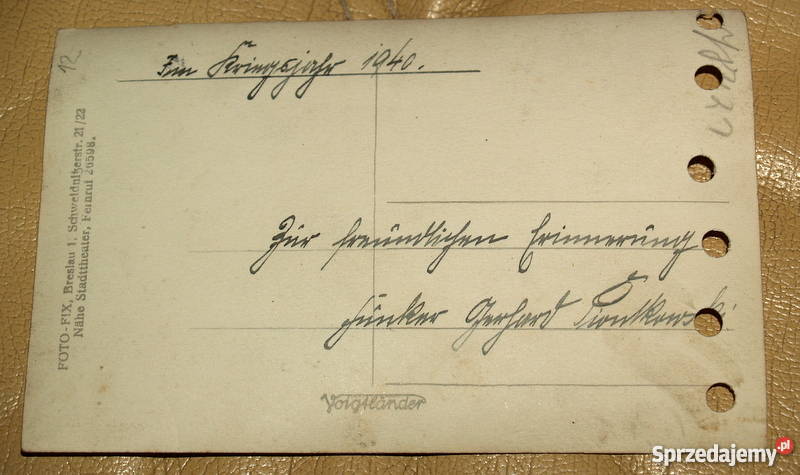 12
Im Kriegsjahr 1940.
FOTO-FIX, Breslau 1, Schweidnitzerstr. 21/22
Nähe Stadttheater, Fernruf 26598.
Zür freündlichen Erinnerüng
Fünker Gerhard Piontkowski
Voigtländer
Sprzedajemy.pl